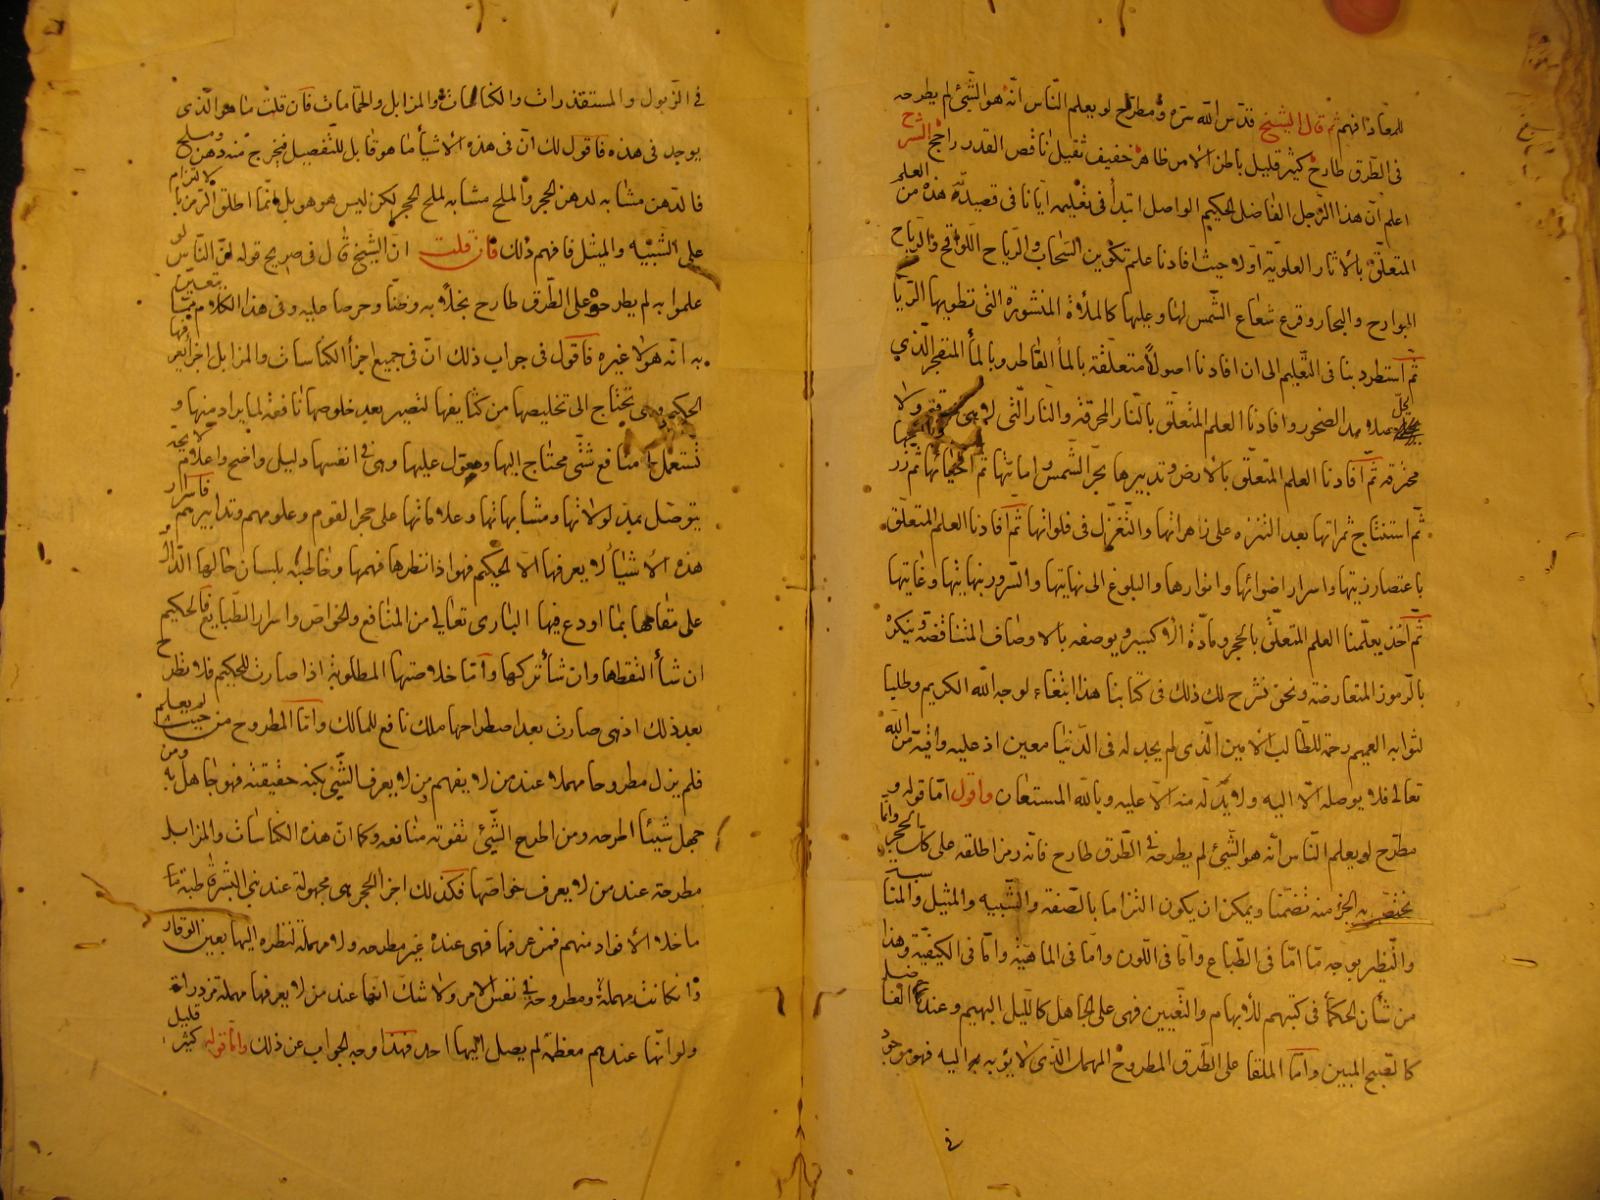 للمعادا فهم ثم قال الشيخ قدس الله سره ومطرح لو يعلم الناس انه هو الشئ لم يطرحه
فى الطرق طارح كثير قليل باطن الامر ظاهر خفيف ثقيل ناقص القدر راجح الشرح
اعلم ان هذا الرجل الفاضل الحكيم الواصل ابتدأ فى تعليمه ايانا فى قصيدته هذه من العلم
المتعلق بالأثار العلوية اولا حيث افادنا علم تكوين السحاب والرياح اللواقح والرياح
البوارح والبحار وقرع شعاع الشمس لها وعليها كالملأة المنشورة التى تطويها الرياح
ثم استطرد بنا فى التعليم الى ان افادنا اصولا متعلقة بالمأ القاطر وبالمأ المنفجر الذي
يحل صلد الصخور وافادنا العلم المتعلق بالنار المحرقة والنار التى لا هى محرقة ولا
محترقة ثم افادنا العلم المتعلق بالأرض وتدبيرها بحر الشمس واماتتها ثم احيائها ثم زر
ثم استنتاج ثمراتها بعد التنزه على زاهراتها والتغزل فى فلواتها ثم افادنا العلم المتعلق
باعتصار زيتها واسرار اضوائها وانوارها والبلوغ الى نهايتها والسرور بنهايتها وغايتها
ثم اخذ يعلمنا العلم المتعلق بالحجر ومادة الأكسير ويوصفه بالاوصاف المتناقضة ويذكره
بالرموز المتعارضة ونحن نشرح لك ذلك فى كتابنا هذا ابتغاء لوجه الله الكريم وطلبا
لثوابه العميم رحمة للطالب الأمين الذى لم يجد له فى الدنيا معين اذ عليه واقية من الله
تعالى فلا يوصله الا اليه ولا يدله منه الا عليه وبالله المستعان واقول اما قوله و
مطرح لو يعلم الناس انه هو الشئ لم يطرحه فى الطرق طارح فانه رمز اطلقه على كتاب الحجر وانما
يختص به الجزء منه تضمنا ويمكن ان يكون التزاما بالصفة والشبيه والمثيل والمناسبة
والنظير بوجه ما اما فى الطباع واما فى اللون واما فى الماهية واما فى الكيفية وهذا
من شأن الحكمأ فى كتبهم للأبهام والتعيين فهى على الجاهل كالليل البهيم وعند الفاضل
كالصبح المبين واما الملقا على الطرق المطروح المهمل الذى لا يؤبه به اليه فهو موجود
فى
فى الزبول والمستقذرات والكناسات والمزابل والحمامات فان قلت ما هو الذى
يوجد فى هذه فاقول لك ان فى هذه الاشيأ ما هو قابل للتفصيل فيخرج منه دهن وملح
فالدهن مشابه لدهن الحجر والملح مشابه لملح الحجر لكن ليس هو هو بل انما اطلق الرمز بالالتزام
على الشبيه والمثل فافهم ذلك فان قلت ان الشيخ قال فى صريح قوله ان الناس لو
علموا به لم يطرحوه على الطرق طارح بخلا به وضنا وحرصا عليه وفى هذا الكلام تعيين
به انه هو لا غيره فاقول فى جواب ذلك ان فى جميع اجزأ الكناسات والمزابل اجزأ يعرفها
الحكيم وهى تحتاج الى تخليصها من كثايفها لتصير بعد خلوصها نافعة لما يراد منها و
تستعمل لمنافع شتى محتاج اليها ومعول عليها وهى فى انفسها دليل واضح واعلام لائحة
يتوصل بمدلولاتها ومشابهاتها وعلاماتها على حجر القوم وعلومهم وتدابيرهم فاسرار
هذه الأشيأ لا يعرفها الا الحكيم فهو اذا نظرها فهمها وخاطبته بلسان حالها الدال
على مقامها بما اودع فيها البارى تعالى من المنافع والخواص واسرار الطبايع فالحكيم ح
ان شأ التقطها وان شأ تركها واما خلاصتها المطلوبة اذا صارت للحكيم فلا تطرح
بعد ذلك اذ هى صارت بعد اصطراحها ملك نافع للمالك واما المطروح من حيث لم يعلم
فلم يزل مطروحا مهملا عند من لا يفهم ومن لا يعرف الشئ بكنه حقيقته فهو جاهل به ومن
جهل شيئا اطرحه ومن اطرح الشئ تفوته منافعه وكما ان هذه الكناسات والمزابل
مطرحة عند من لا يعرف خواصها فكذلك اجزأ الحجر هى مجهولة عند بنى البشرة طبة ما
ما خلا الأفراد منهم فمن عرفها فهى عنده غير مطرحه ولا مهملة لنظره اليها بعين الوقار
وان كانت مهملة ومطروحة فى نفس الامر ولا شك انها عند من لا يعرفها مهملة مزدراة
ولو انها عندهم معظمه لم يصل اليها احد فهذا وجه الجواب عن ذلك واما قوله كثير قليل